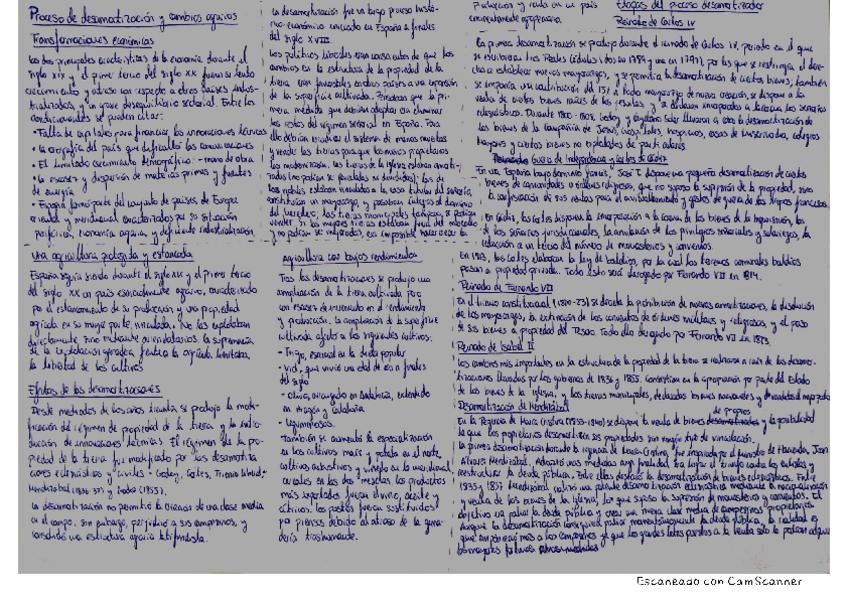 Proceso de desamortización y cambios agrarios
Transformaciones económicas
Las dos principales características de la economía durante el
siglo XIX y el primer tercio del siglo XX fueron su lento
crecimiento y atraso con respecto a otros países indus-
trializados, y un grave desequilibrio sectorial. Entre los
condicionantes se pueden citar:
• Falta de capitales para financiar las innovaciones técnicas
• La orografía del país que dificultaba las comunicaciones
• El limitado crecimiento demográfico: - mano de obra
• La escasez y dispersión de materias primas y fuentes
de energía
• España forma parte del conjunto de países de Europa
oriental y meridional caracterizados por su situación
periférica, economía agraria y deficiente industrialización.
Una agricultura protegida y estancada
España seguía siendo durante el siglo XIX y el primer tercio
del siglo XX un país esencialmente agrario, caracterizado
por el estancamiento de su producción y una propiedad
agrícola en su mayor parte vinculada. No las explotaban
directamente sino mediante arrendatarios. La supremacía
de la explotación ganadera frente a la agrícola limitaba
la libertad de los cultivos
Efectos de las desamortizaciones
Desde mediados de los años treinta se produjo la modi-
ficación del régimen de propiedad de la tierra y la intro-
ducción de innovaciones técnicas. El régimen de la pro-
piedad de la tierra fue modificado por las desamortiza-
ciones eclesiásticas y civiles - Godoy, Cortes, Trienio liberal,
Mendizábal (1836-37) y Madoz (1855).
La desamortización no permitió la creación de una clase media
en el campo, sin embargo, perjudicó a sus campesinos, y
consolidó una estructura agraria latifundista.
La desamortización fue un largo proceso histó-
rico-económico iniciado en España a finales
del siglo XVIII
Los políticos liberales eran conscientes de que los
cambios en la estructura de la propiedad de la
tierra
de la superficie cultivada. Pensaban que la pri-
mera medida que debían adoptar era eliminar
los restos del régimen señorial en España. Para
ello debían
y vender las tierras para que los nuevos propietarios
las modernizaran. Las tierras de la Iglesia estaban amorti-
zadas (no podían ser
nobles estaban vinculadas a la casa titular del señorío,
constituían un mayorazgo, y
del heredero; las tierras municipales tampoco se podían
vender. Si las mejores tierras estaban fuera del mercado
y no podían ser mejoradas, era imposible
Agricultura con bajos rendimientos
Tras las desamortizaciones se produjo una
ampliación de la tierra cultivada pero
con escaso incremento en el rendimiento
y producción. La ampliación de la superficie
cultivada afectó a los siguientes cultivos:
- Trigo, esencial en la dieta popular
- Vid, que vivió una edad de oro a finales
del siglo
- Olivo, arraigado en Andalucía, extendido
en Aragón y Cataluña
- Leguminosas.
También se aumentó la especialización
en los cultivos: maíz y patata en el norte,
cultivos arbustivos y viñedo en la meridional,
cereales en las dos mesetas. Los productos
más exportados fueron el vino, aceite y
cítricos. Los pastos fueron sustituidos
por piensos debido al atraso de la gana-
dería trashumante.
en un país
agropecuaria.
Etapas del proceso desamortizador
Reinado de Carlos IV
La primera desamortización se produjo durante el reinado de Carlos IV, periodo en el que
se emitieron dos Reales Cédulas (una en 1789 y otra en 1797), por las que se restringía el dere-
cho a establecer nuevos mayorazgos, y se permitía la desamortización de ciertos bienes, también
se imponía una contribución del 15% a todo mayorazgo de nueva creación, se dispuso a la
venta de ciertos bienes raíces de los jesuitas, y
los bienes de la Compañía de Jesús, hospitales, hospicios, casas de misericordia, colegios
mayores y ciertos bienes no explotados de particulares.
Guerra de Independencia y Cortes de Cádiz
En una España bajo dominio francés, José I dispuso una pequeña desamortización de ciertos
bienes de comunidades u órdenes religiosas, que no supuso la supresión de la propiedad, sino
la confiscación de sus rentas para el avituallamiento y gastos de guerra de las tropas francesas.
En Cádiz, las Cortes disponen la incorporación a la corona de los bienes de la Inquisición, los
de los señoríos jurisdiccionales, la anulación de los privilegios señoriales y solariegos, la
reducción a un tercio del número de monasterios y conventos.
En 1813, las Cortes elaboran la ley de baldíos, por la cual los terrenos comunales baldíos
pasan a propiedad privada. Todo esto será derogado por Fernando VII en 1814.
Reinado de Fernando VII
En el trienio constitucional (1820-23) se decide la prohibición de nuevas amortizaciones, la disolución
de los mayorazgos, la extinción de los conventos de órdenes militares y religiosas, y el paso
de sus bienes a propiedad del Tesoro. Todo ello derogado por Fernando VII en 1823.
Reinado de Isabel II
Los cambios más importantes en la estructura de la propiedad de la tierra se realizaron a raíz de las desamor-
tizaciones llevadas por los gobiernos de 1836 y 1855. Consistían en la apropiación por parte del Estado
de los bienes de la Iglesia, y las tierras municipales, declarados bienes nacionales y
Desamortización de Mendizábal
En la Regencia de María Cristina (1833-1840) se dispone la venta de bienes de propios y la posibilidad
de que los propietarios desamorticen sus propiedades sin ningún tipo de vinculación.
La primera desamortización durante la regencia de María Cristina, fue impulsada por el ministro de Hacienda, Juan
Álvarez Mendizábal. Adoptó unas medidas
restituir la deuda pública. Entre ellas destacó la desamortización de bienes eclesiásticos. Entre
1835 y 1837 Mendizábal
y venta de los bienes de la Iglesia, lo que supuso la supresión de monasterios y conventos. El
objetivo era paliar la deuda pública y crear una nueva clase media de campesinos propietarios.
Aunque la desamortización consiguió paliar momentáneamente la deuda pública, la realidad es
que
Escaneado con CamScanner